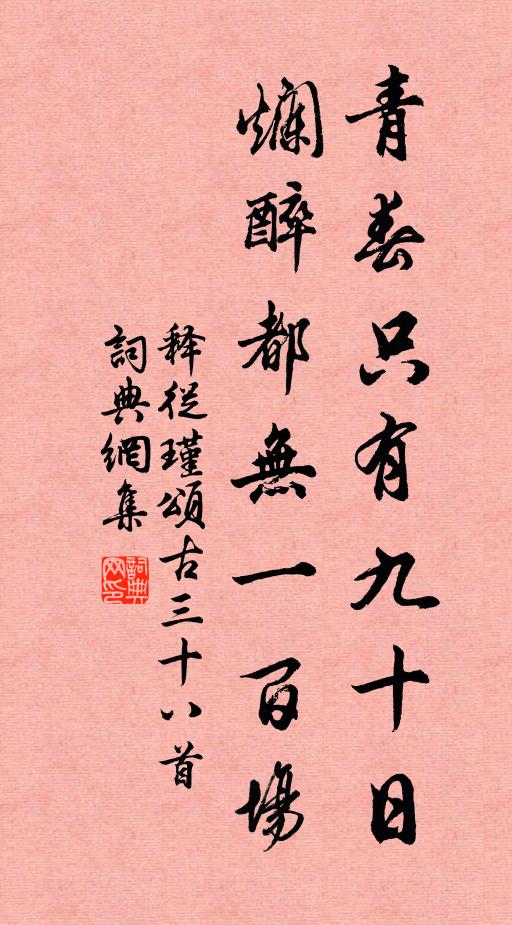 青春只有九十日
爛醉都無一百場
释從瑾頌古三十八首
詞典網集
詞典网印